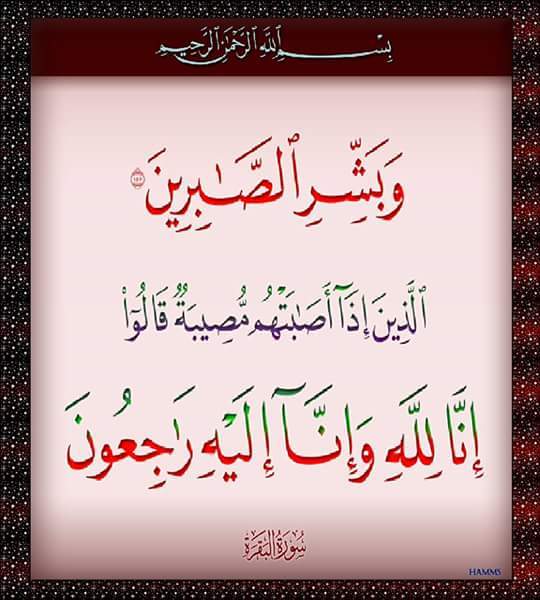 بِسْمِ ٱللَّهِ ٱلرَّحْمَٰنِ ٱلرَّحِيمِ
وَبَشِّرِ ٱلصَّٰبِرِينَ ١٥٥
ٱلَّذِينَ إِذَآ أَصَٰبَتْهُم مُّصِيبَةٌ قَالُوٓا۟
إِنَّا لِلَّهِ وَإِنَّآ إِلَيْهِ رَٰجِعُونَ
سُورَةُ البَقَرَة
HAMMS